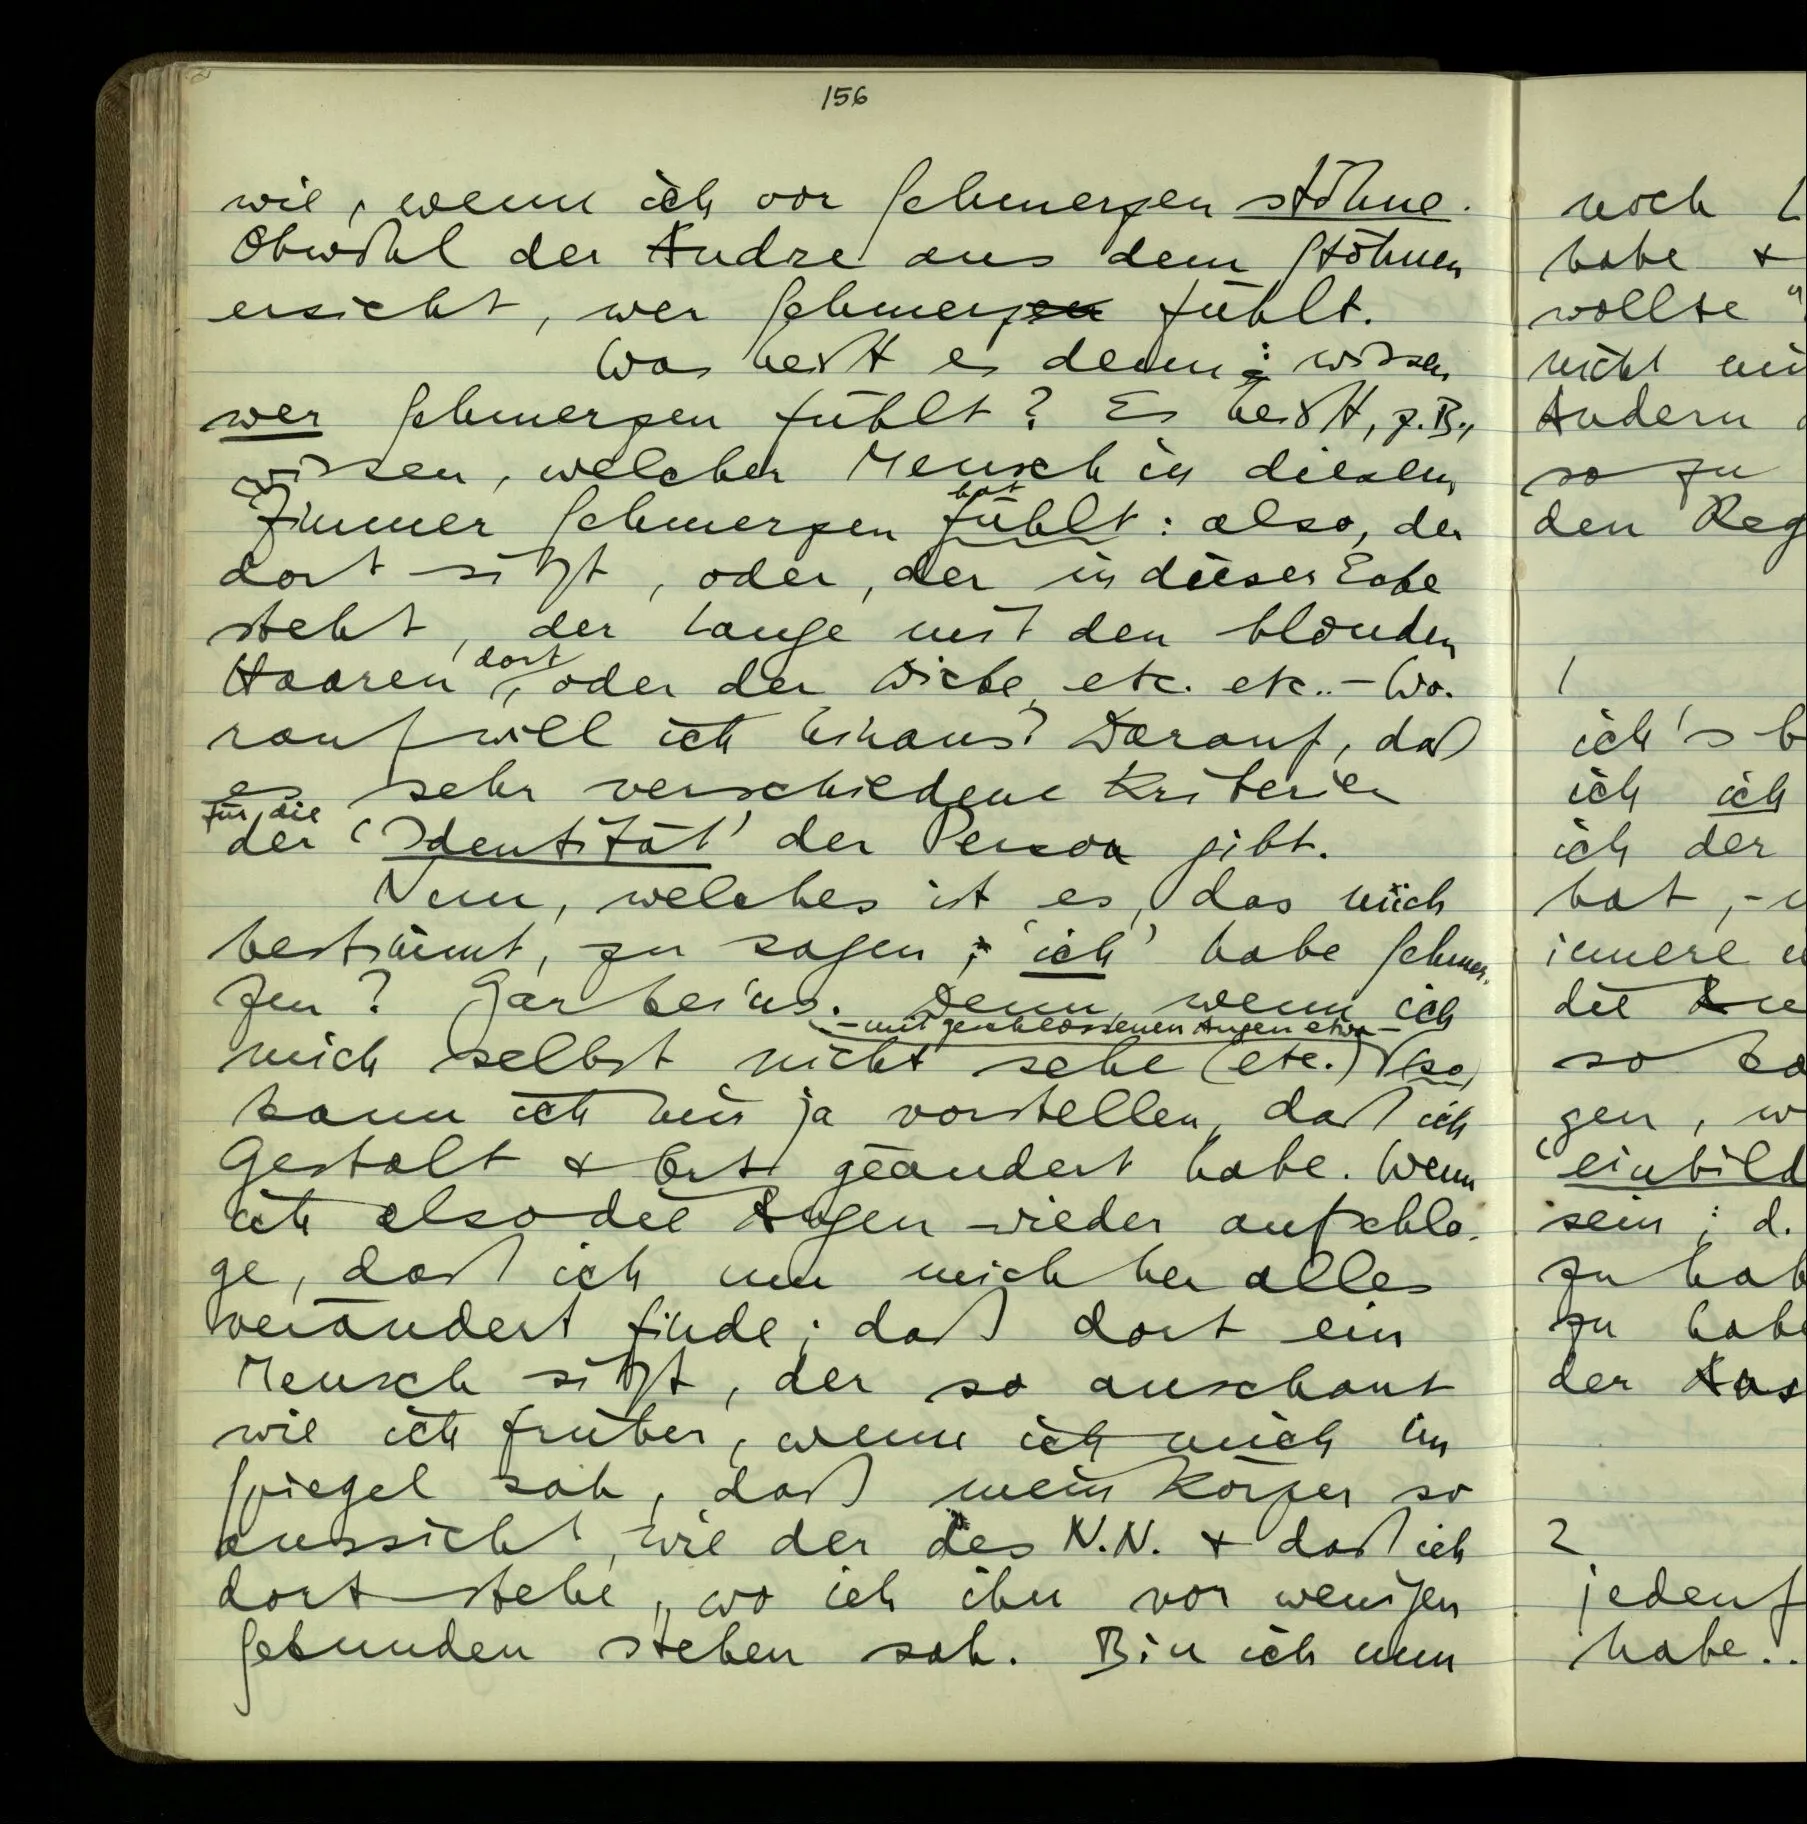 156
wie, wenn ich vor Schmerzen stöhne.
Obwohl der Andre aus dem Stöhnen
ersieht, wer Schmerzen fühlt.
Was heißt es denn: wissen
wer Schmerzen fühlt? Es heißt, z.B.,
wissen, welcher Mensch in diesem
hat
Zimmer Schmerzen fühlt: also, der
dort sitzt, oder, der in dieser Ecke
steht, der Lange mit den blonden
dort
Haaren, oder der Dicke, etc. etc.. – Wo-
rauf will ich hinaus? Darauf, daß
es sehr verschiedene Kriterien
für die
der ‘Identität’ der Person gibt.
Nun, welches ist es, das mich
bestimmt, zu sagen, ‘ich’ habe Schmer-
zen? Gar keins. Denn, wenn ich
– mit geschlossenen Augen etwa –
mich selbst nicht sehe (etc.) so
kann ich mir ja vorstellen, daß ich
Gestalt & Ort geändert habe. Wenn
ich also die Augen wieder aufschla-
ge, daß ich um mich her alles
verändert finde; daß dort ein
Mensch sitzt, der so anschaut
wie ich früher, wenn ich mich im
Spiegel sah, daß mein Körper so
aussieht, wie der des N.N. & daß ich
dort stehe, wo ich ihn vor wenigen
Sekunden stehen sah. Bin ich nun
noch
habe &
wollte "
nicht
Andern
so zu
den Reg
1
ich's b
ich ich
ich der
hat, –
innere
die
so ka
gen, w
‘einbild
sein; d.
zu hab
zu habe
der Aus
2
jedenf
habe..